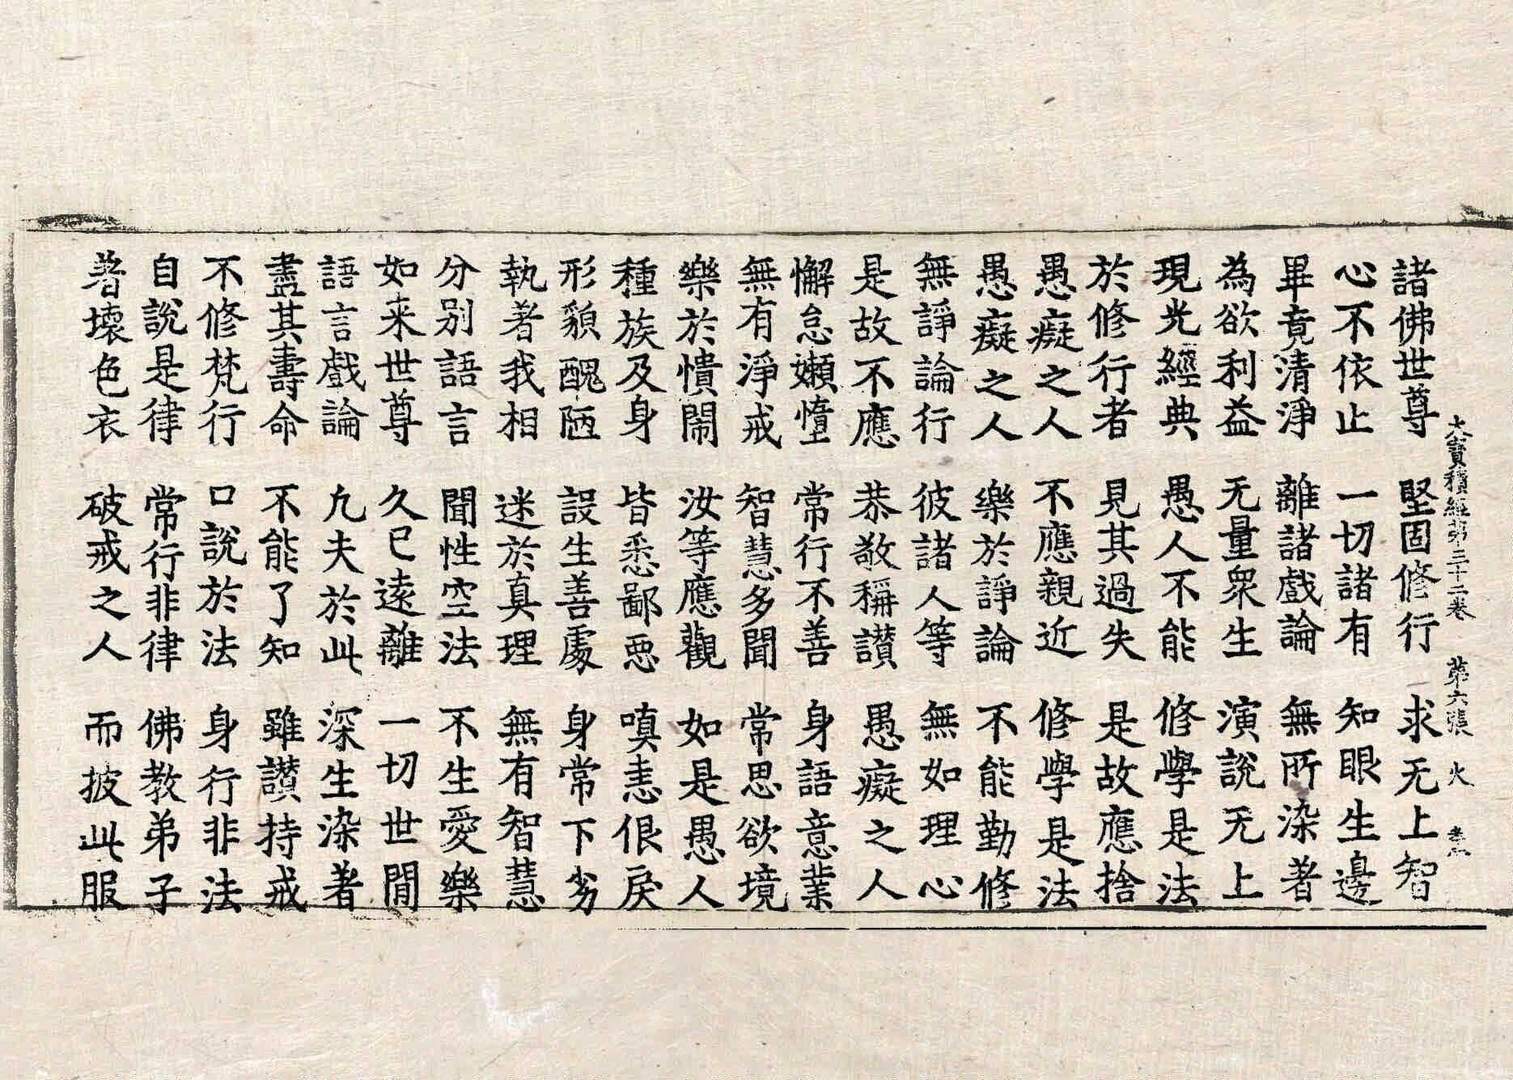 大寶積經第三十二卷 第六張 火
諸佛世尊 堅固修行 求无上智
心不依止 一切諸有 知眼生邊
畢竟清淨 離諸戲論 無所染著
為欲利益 无量衆生 演說无上
現光經典 愚人不能 修學是法
於修行者 見其過失 是故應捨
愚癡之人 不應親近 修學是法
愚癡之人 樂於諍論 不能勤修
無諍論行 彼諸人等 無如理心
是故不應 恭敬稱讃 愚癡之人
懈怠嬾憜 常行不善 身語意業
無有淨戒 智慧多聞 常思欲境
樂於憒閙 汝等應觀 如是愚人
種族及身 皆悉鄙惡 嗔恚佷戾
形貌醜陋 設生善處 身常下劣
執著我相 迷於真理 無有智慧
分别語言 聞性空法 不生愛樂
如来世尊 久已遠離 一切世閒
語言戲論 凡夫於此 深生染著
盡其壽命 不能了知 雖讃持戒
不修梵行 口說於法 身行非法
自說是律 常行非律 佛教弟子
著壞色衣 破戒之人 而披此服